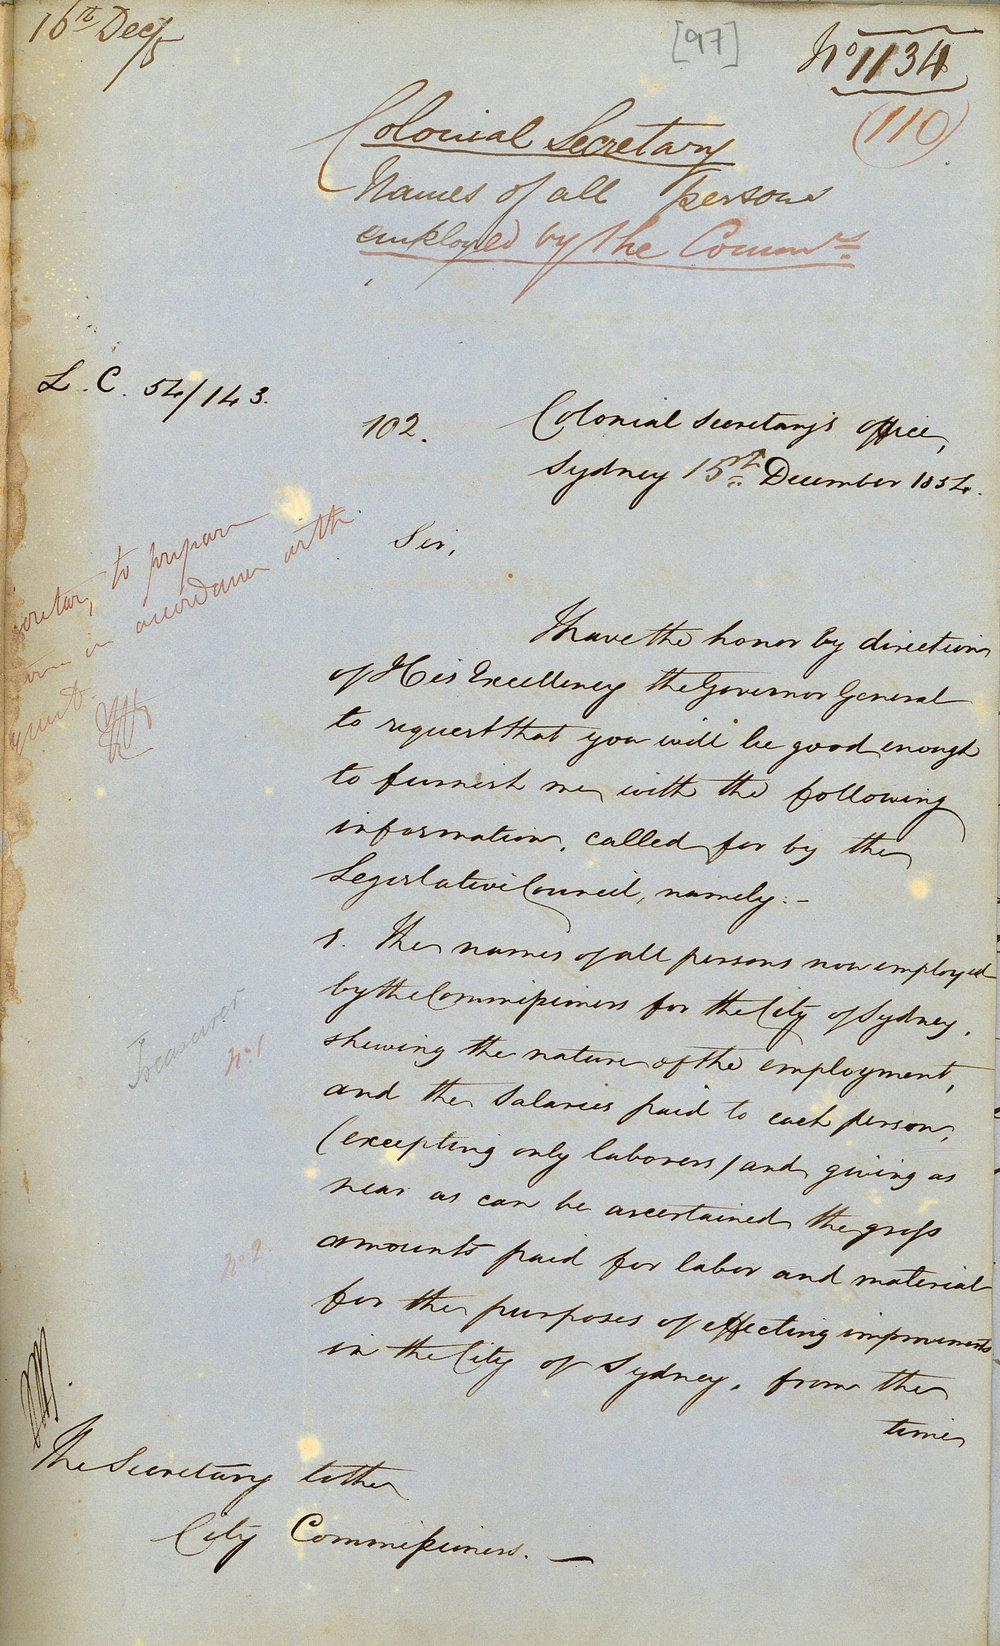 16th Dec/5
[97]
No 1134
(110)
Colonial Secretary
Names of all persons
employed by the Commrs
L.C. 54/143.
102.
Colonial Secretary's Office,
Sydney 15th December 1854.
to prepare
in accordance with
Sir,
I have the honor by direction
of His Excellency the Governor General
to request that you will be good enough
to furnish me with the following
information, called for by the
Legislative Council, namely:-
1. The names of all persons now employed
by the Commissioners for the City of Sydney,
shewing the nature of the employment,
and the Salaries paid to each person,
(excepting only laborers) and giving as
near as can be ascertained the gross
amounts paid for labor and material
for the purposes of effecting improvements
in the City of Sydney, from the
time
Treasurer
No. 1
No 2
The Secretary to the
City Commissioners. —